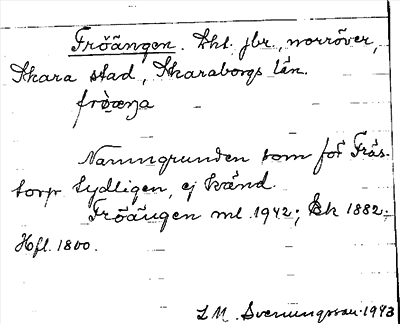 Fröängen. Lht. jbr., norröver,
Skara stad, Skaraborgs län.
frö̀æŋa
Namngrunden som för Frös-
torp tydligen, ej känd.
Fröängen ml. 1942; Ek 1882;
Hfl. 1800.
L.M. Svenungsson. 1943